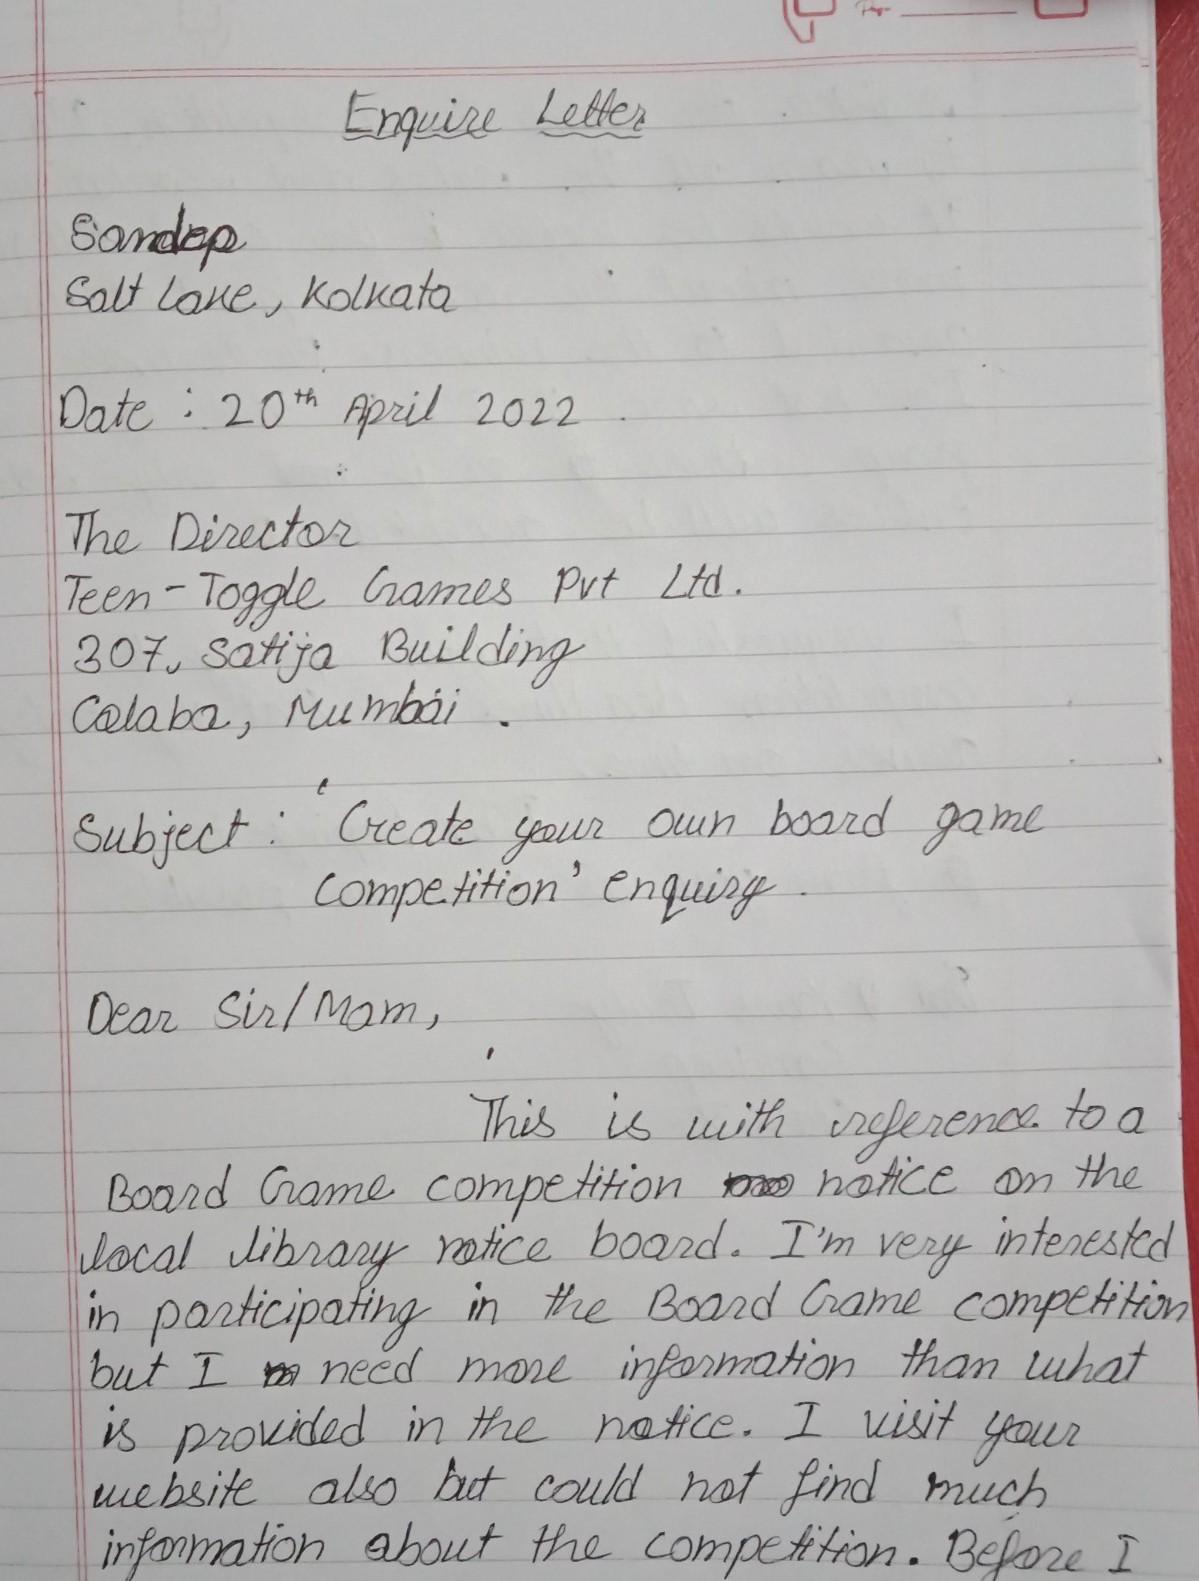 Enquire Letter
Sandep
Salt Lake, Kolkata
Date : 20th April 2022.
The Director
Teen-Toggle Games Pvt Ltd.
307, Satija Building
Colaba, Mumbai.
Subject: 'Create your own board game
competition' enquiry.
Dear Sir/Mam,
This is with reference to a
Board Game competition notice on the
local library notice board. I'm very interested
in participating in the Board Game competition
but I need more information than what
is provided in the notice. I visit your
website also but could not find much
information about the competition. Before I